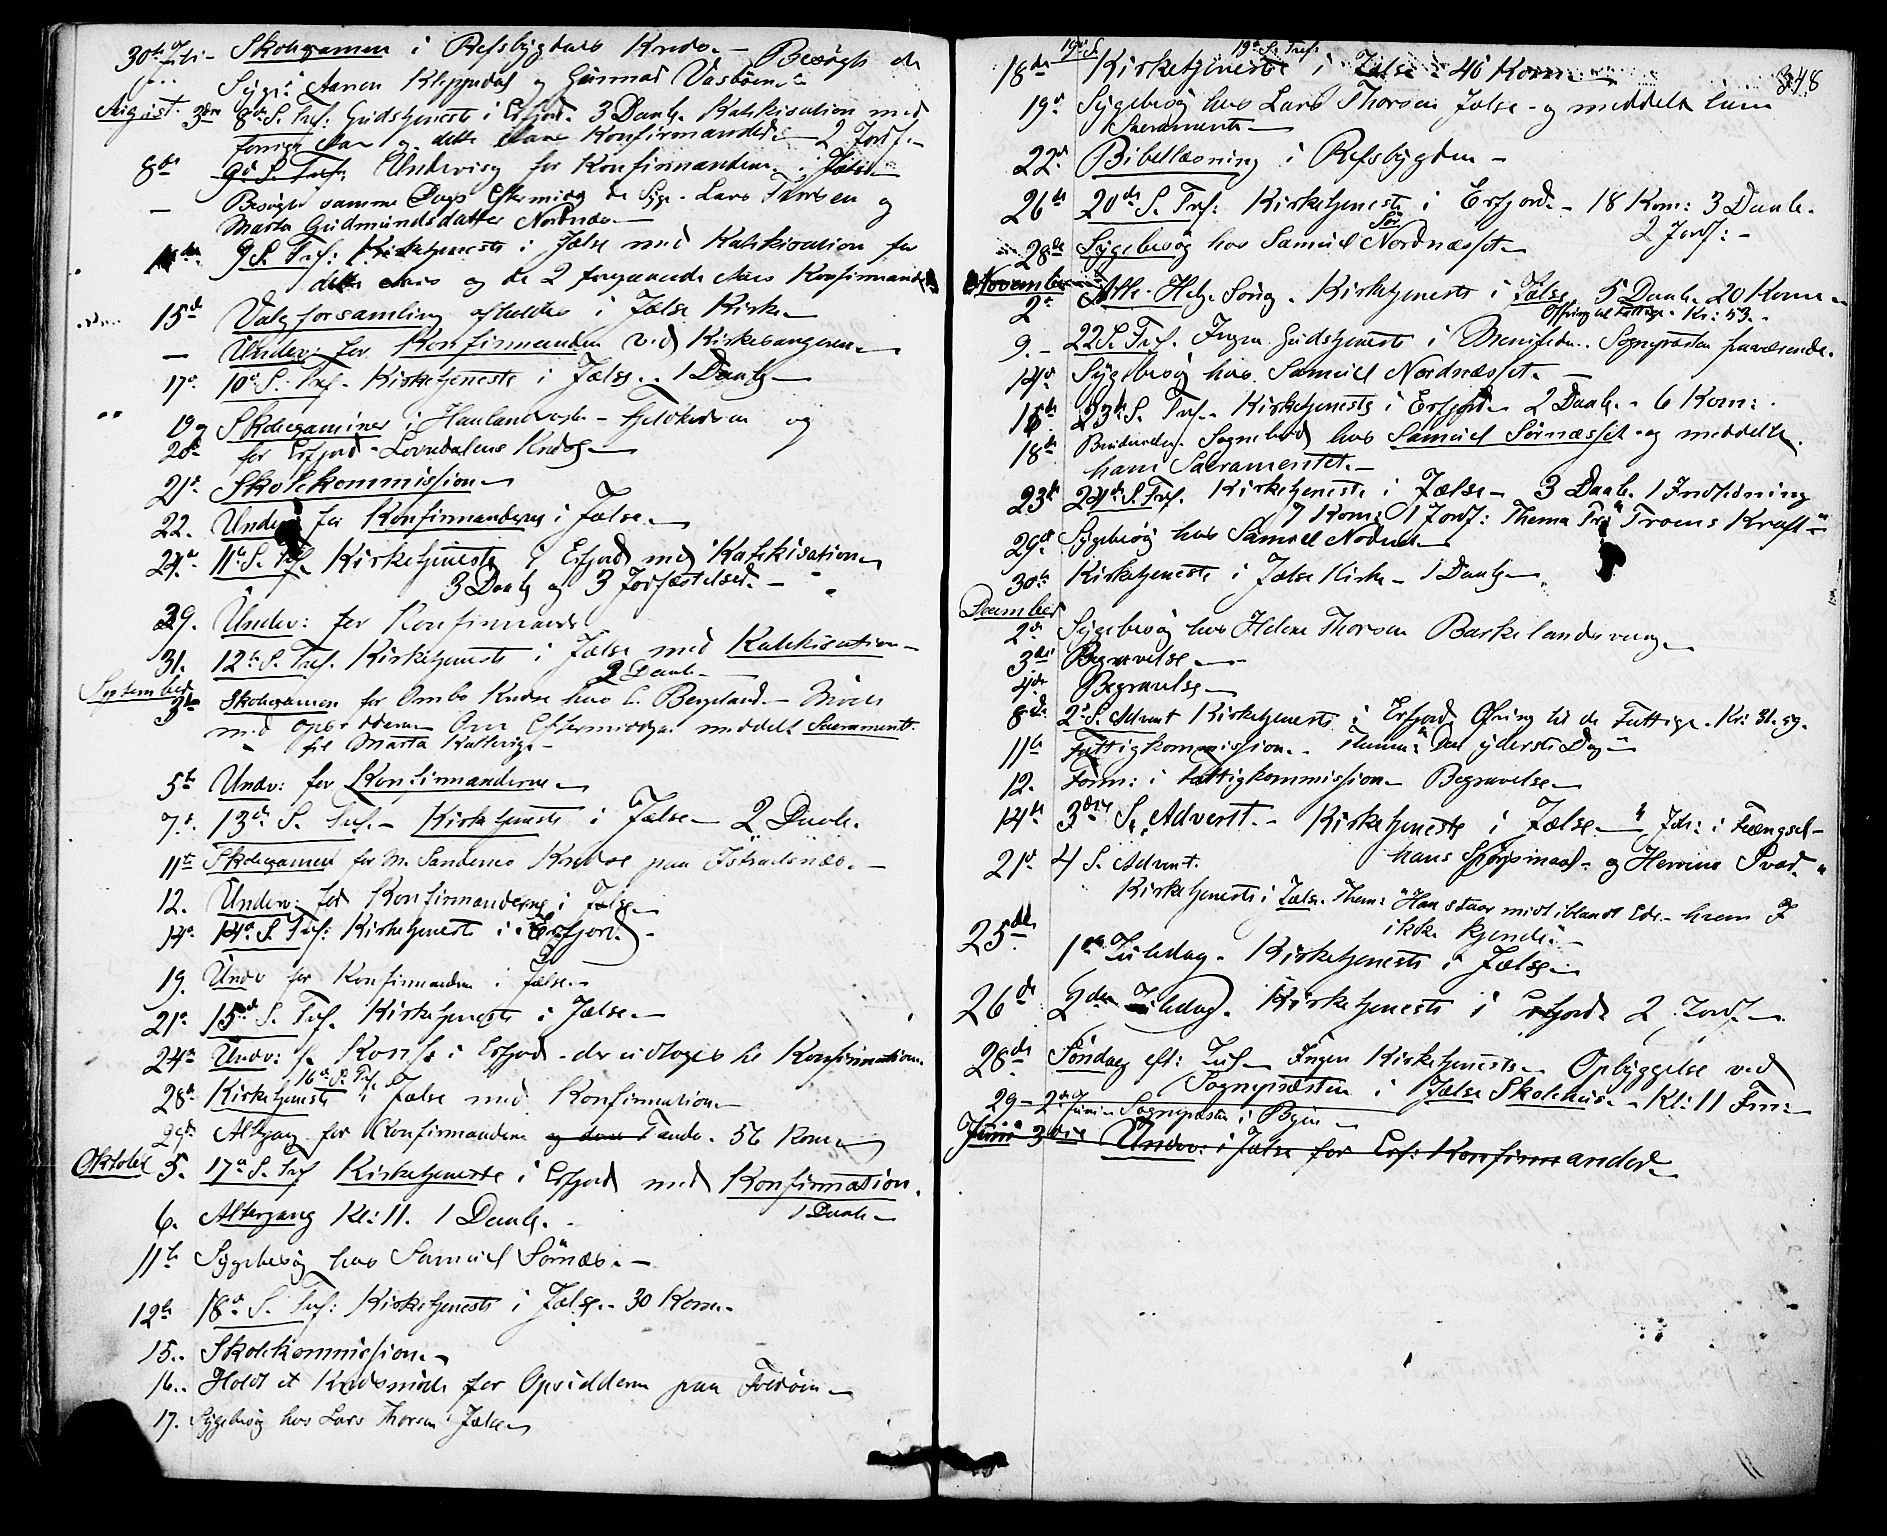 30te Juli - Skolexamen i Refsbygdens Kreds. - Besøgte de
Syge: Aanen Kleppedal og Gunnar Vasbøen
August 3die 8de S. Tref: Gudstjeneste i Erfjord. 3 Daab. Katekisation med
forrige Aar og dette Aars Konfirmander. 2 Jordf.
8de 9de S. Tref: Undervisg for Konfirmanderne i Jelse
- Besøgte samme Dags Eftermidg de Syge. Lars Thorsen og
Marta Gudmundsdatter Nordnæs.
9 S. Tref: Kirketjeneste i Jelse med Katekisation for
dette Aars og de 2 foregaaende Aars Konfirmander
15de Valgforsamling afholdtes i Jelse Kirke
- Underv: for Konfirmanderne ved Kirkesangeren
17de 10de S. Tref. Kirketjeneste i Jelse. 1 Daab
19 Skolexaminer i - og
20de for Erfjord - Lovndalens Kreds
21de Skolekommission
22. Underv for Konfirmanderne i Jelse.
24de 11te S. Tref. Kirketjeneste i Erfjord med Katekisation
3 Daab og 3 Jordfæstelser. -
29. Underv: for Konfirmande
31. 12te S. Tref. Kirketjeneste i Jelse med Katekisation -
2 Daab.
September
3die Skolexamen for Ombo Kreds hos C. Bergeland. - Møde
med Opsidderne Om Eftermiddgn meddelt Sacramentet
til Marta
5te Undv: for Konfirmanderne
7de 13de S. Tref. - Kirketjeneste i Jelse 2 Daab.
11te Skolexamen for M. Sandenes Kreds paa
12. Underv: for Konfirmanderne i Jelse
14de 14de S. Tref: Kirketjeneste i Erfjord. -
19. Undv for Konfirmanderne i Jelse.
21de 15de S. Tref. Kirketjeneste i Jelse.
24de Undv: for Konf: i Erfjord - der udtoges til Konfirmation.
16de S. Tref.
28de Kirketjeneste i Jelse med Konfirmation
29de Altgang for Konfirmanderne 56 Kom
Oktober 5. 17de S. Tref Kirketjeneste i Erfjord med Konfirmation.
1 Daab
6. Altergang Kl: 11. 1 Daab.
11te Sygebesøg hos Samuel Sørnæs. -
12te 18de S. Tref: Kirketjeneste i Jelse. 30 Kom.
15. Skolekommission.
16. Holdt et Kredsmøde for Opsidderne paa Foldøen
17. Sygebesøg hos Lars Thorsen Jelse
348
19de S. Tref:
18de Kirketjeneste i Jelse: 40 Kom
19de Sygebesøg hos Lars Thorsen Jelse - og meddelte ham
Sacramentet
22de Bibellæsning i Refsbygden -
26de 20de S. Tref: Kirketjeneste i Erfjord. - 18 Kom: 3 Daab.
2 Jordf: -
28de Sygebesøg hos Samuel Nordnæsset
Sør
November
2de Alle Helg. Søndg. Kirketjeneste i Jelse 5 Daab. 20 Kom
Offring til Fattige. Kr: 53.
9. - 22 S. Tref. Ingen Gudstjeneste i Menighedn. Sognepræsten fraværende.
14de Sygebesøg hos Samuel Nordnæsset. -
16de 23de S. Tref. Kirketjeneste i Erfjord 2 Daab. 6 Kom:
18de Sognebud hos Samuel Sørnæsset og meddelte
ham Sacramentet. -
23de 24de S. Tref. Kirketjeneste i Jelse - 3 Daab. 1 Indledning
7 Kom: 1 Jordf: Thema Tro Troens Kraft
29de Sygebesøg hos Samuel Nordnæs
30te Kirketjeneste i Jelse Kirke - 1 Daab
December
2de Sygebesøg hos Helene Thorsen Barkelandsvaag
3die Begravelse
4de Begravelse
8de 2de S. Advent Kirketjeneste i Erfjord Ofring til de Fattige. Kr: 31.59.
11te Fattigkommission. Thema: "Den yderste Dag"
12. Form: i Fattigkommission Begravelse
14de 3die S. Advent. - Kirketjeneste i Jelse "Joh: i Fængsel -
hans Spørgsmaal - og Herrens Svar."
21de 4 S. Advent.
Kirketjeneste i Jelse. Thema: "Han staar midt iblandt Eder - hvem I
ikke kjende" -
25de 1ste Juledag. Kirketjeneste i Jelse
26de 2den Juledag. Kirketjeneste i Erfjord 2 Jordf.
28de Søndag eft: Jul Ingen Kirketjeneste Opbyggelse ved
Sognepræsten i Jelse Skolehus. Kl: 11 Fm:
29 - 2den Juni Sognepræsten i Byen
Juni 3die Underv: i Jelse for Erf: Konfirmander